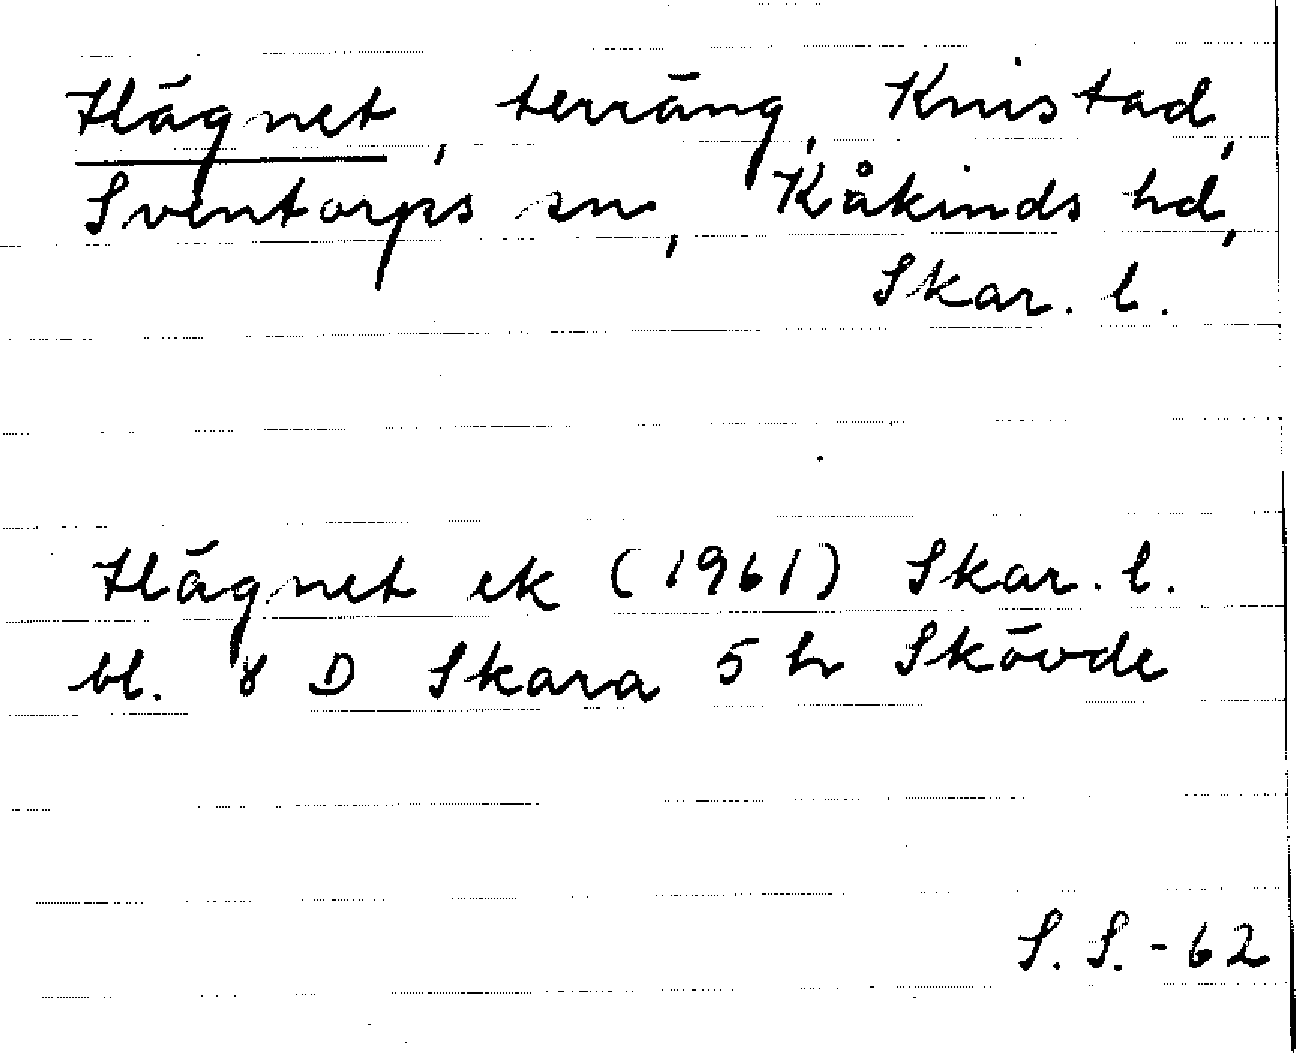 Hägnet, terräng, Knistad,
Sventorps sn, Kåkinds hd,
Skar. l.
Hägnet ek (1961) Skar. l.
bl. 8 D Skara 5 h Skövde
S. S. - 62